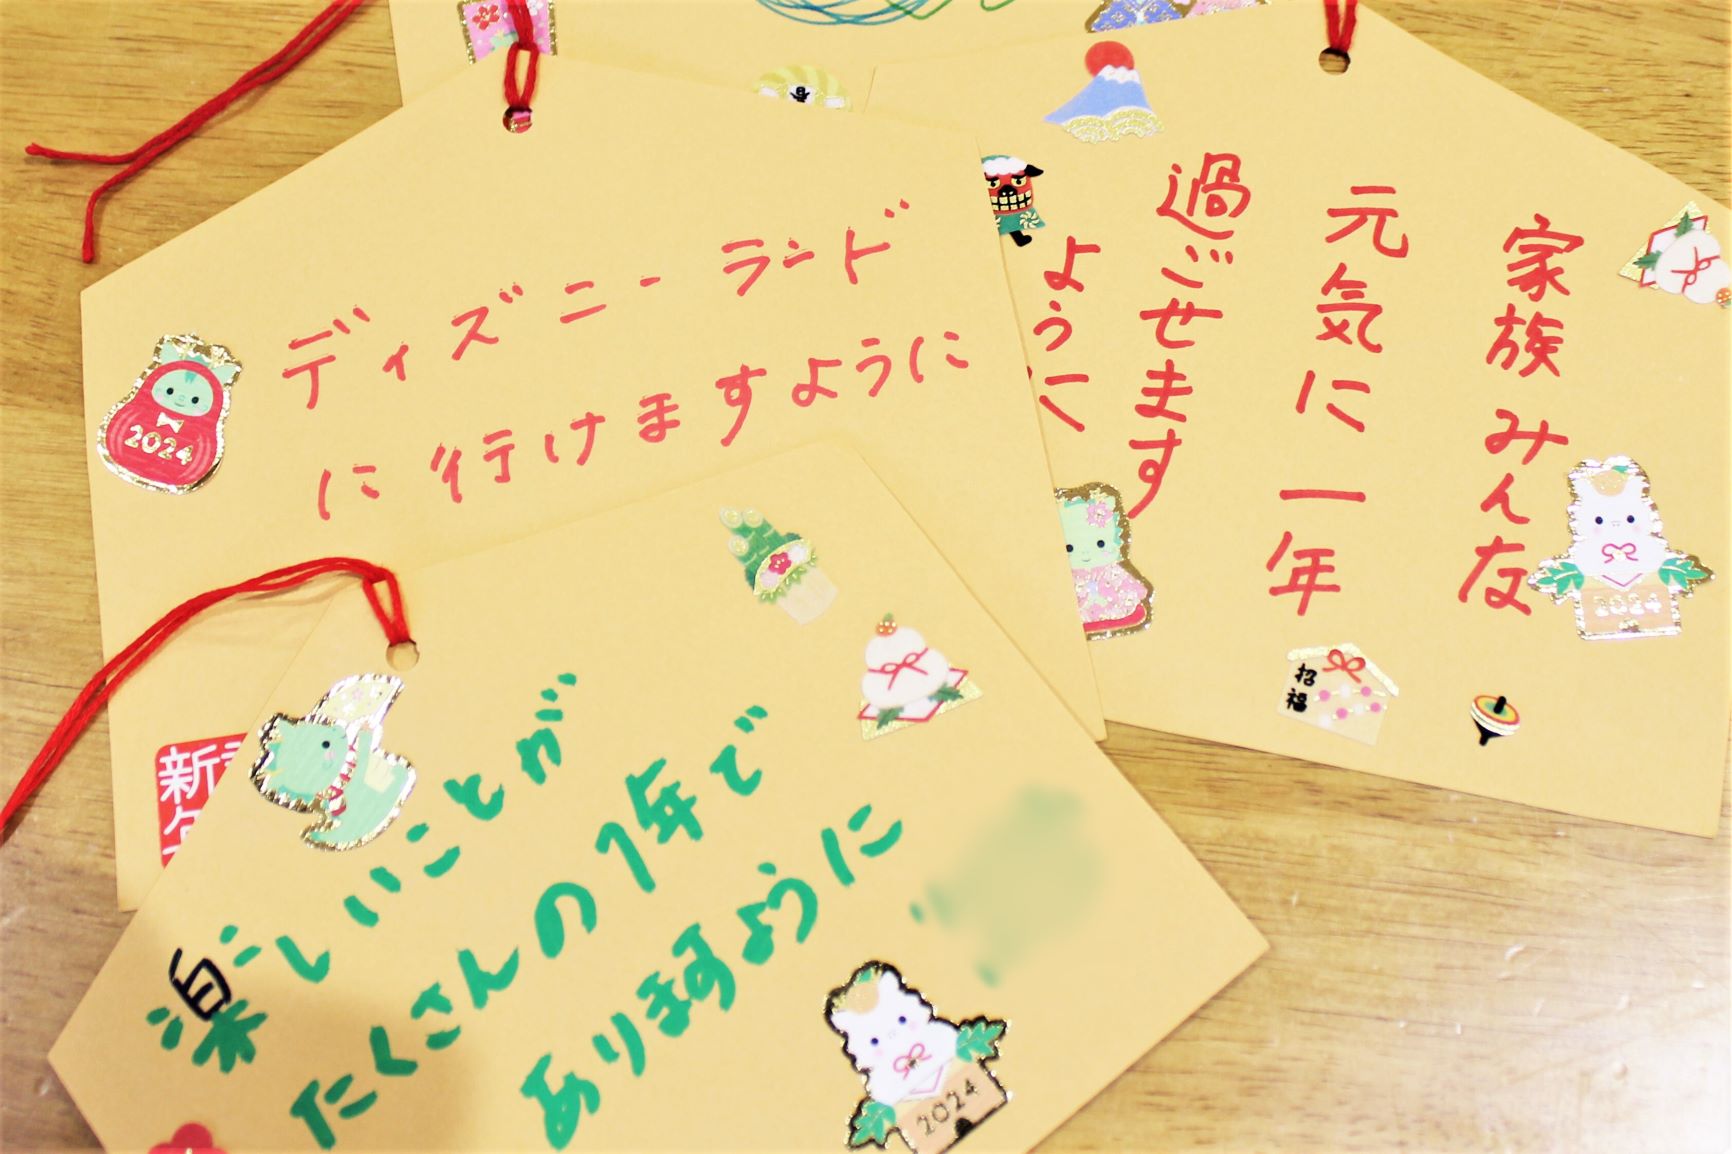 ディズニーランド
に行けますように
2024
家族みんな
元気に一年
過ごせます
ように
2024
招福
楽しいことが
たくさんの1年で
ありますように
2024
新